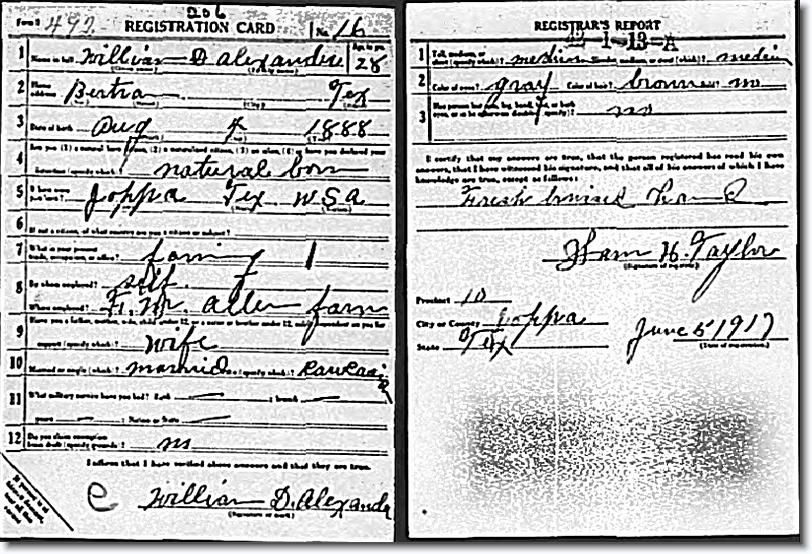 206
Form 1 497 REGISTRATION CARD No. 16
1 Name in full William D Alexander Age in yrs. 28
2 Home address Bertra Tex
3 Date of birth Aug 1888
4 Are you (1) a natural born citizen, (2) a naturalized citizen, (3) an alien, (4) or have you declared your
intention (specify which)? natural born
5 If born, where were you born? Joppa Tex USA
6 If not a citizen, of what country are you a citizen or subject?
7 What is your present trade, occupation, or office? farming 1
8 By whom employed? self
Where employed? F. M. Allen farm
9 Have you a father, mother, wife, child under 12, or a sister or brother under 12, solely dependent on you for
support (specify which)? Wife
10 Married or single (which)? married Race (specify which)?
11 What military service have you had? Rank branch
years Nation or State
12 Do you claim exemption from draft (specify grounds)? no
I affirm that I have verified above answers and that they are true.
William D. Alexander
(Signature or mark)
REGISTRAR'S REPORT
42-1-13-A
1 Tall, medium, or short (specify which)? medium Slender, medium, or stout (which)? medium
2 Color of eyes? gray Color of hair? brown Bald? no
3 Has person lost arm, leg, hand, foot, or both
eyes, or is he otherwise disabled (specify)? no
I certify that my answers are true, that the person registered has read his own
answers, that I have witnessed his signature, and that all of his answers of which I have
knowledge are true, except as follows:
Fresh bruised
H. Taylor
(Signature of registrar)
Precinct 10
City or County Joppa
State Tex
June 5 1917
(Date of registration)